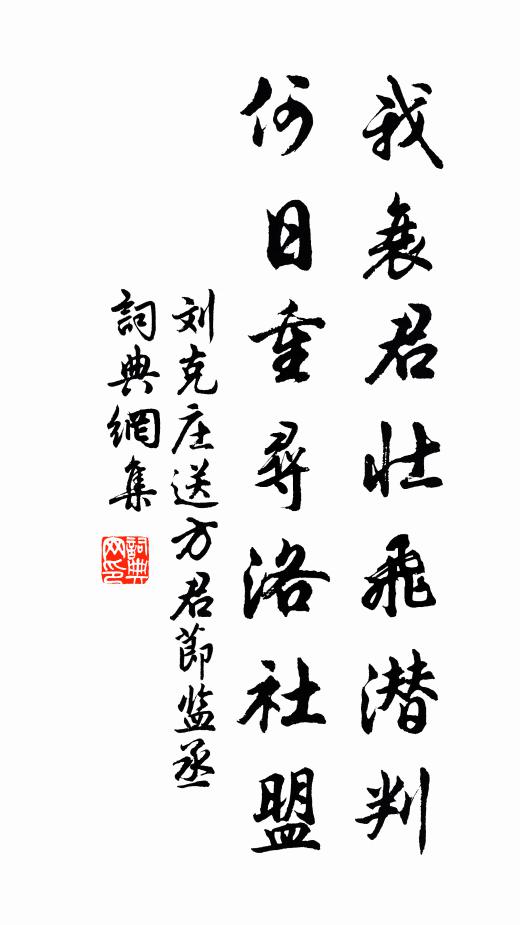 我衰君壮飛潜判
何日重尋洛社盟
刘克庄送方君節监丞
詞典網集
詞典网印